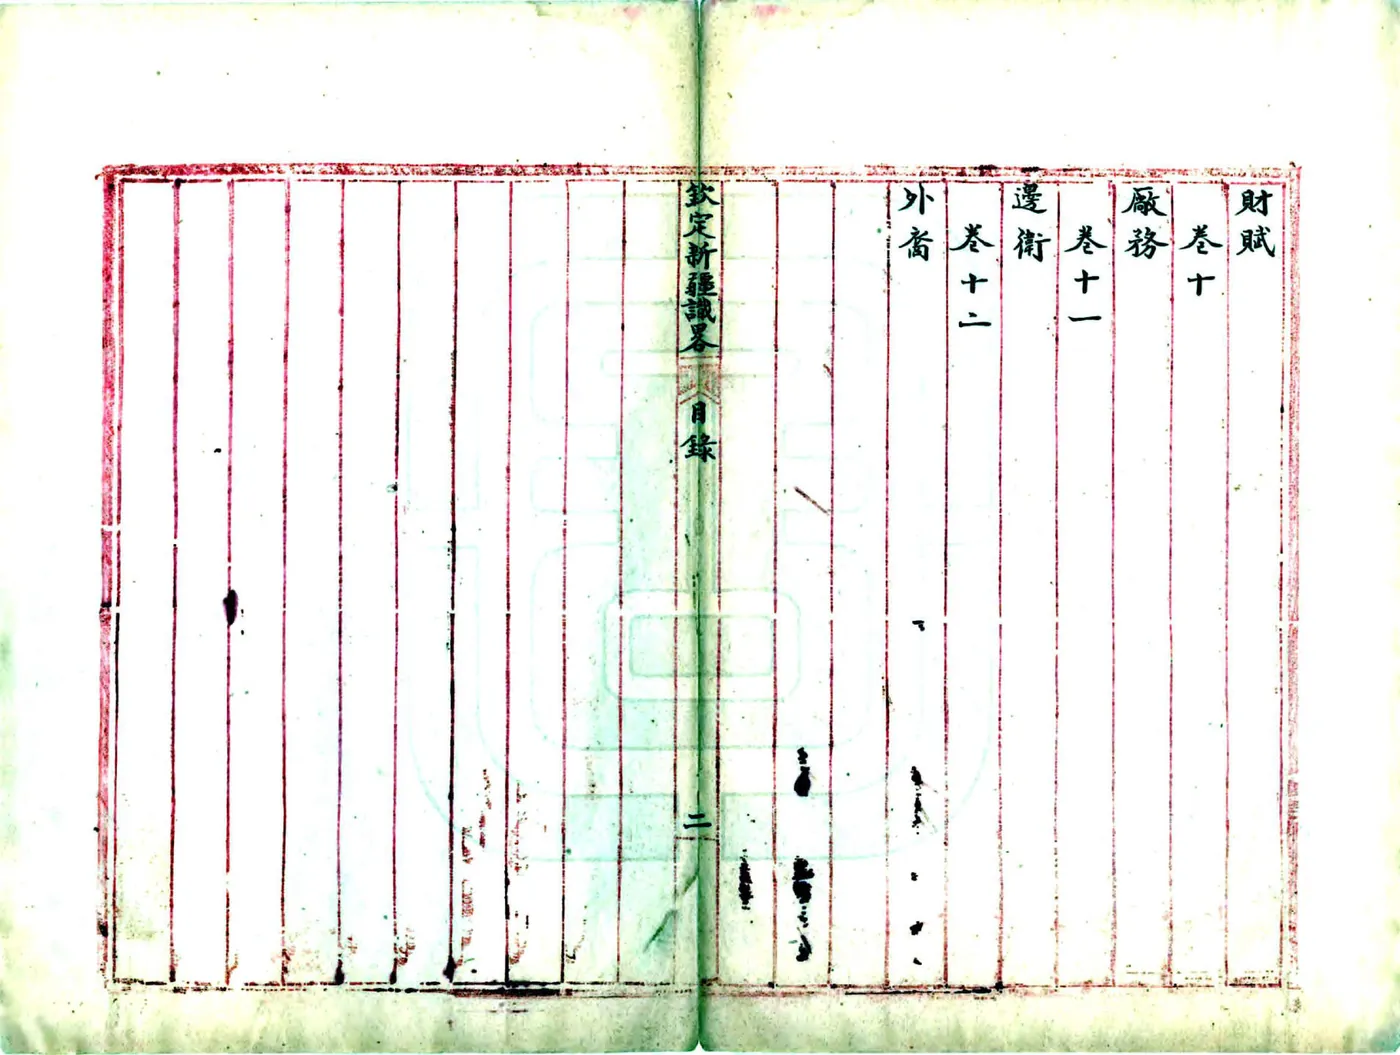 財賦
卷十
廠務
卷十一
邊衛
卷十二
外裔
欽定新疆識畧
目錄
二